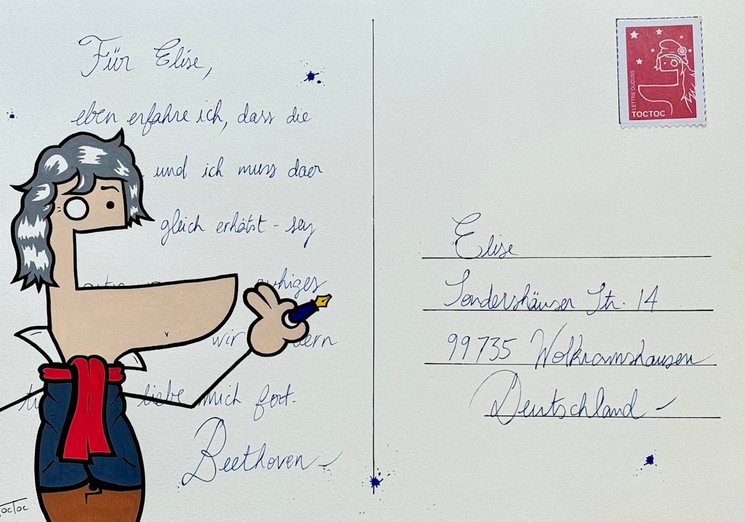 Für Elise,
eben erfahre ich, dass die
und ich muss daer
gleich erhätst - sey
uhiges
wir ern
liebe mich fort-
Beethoven
TocToc
LETTRE DUDUSS
TOCTOC
Elise
Sondershäuser Str. 14
99735 Wolkramshausen
Deutschland